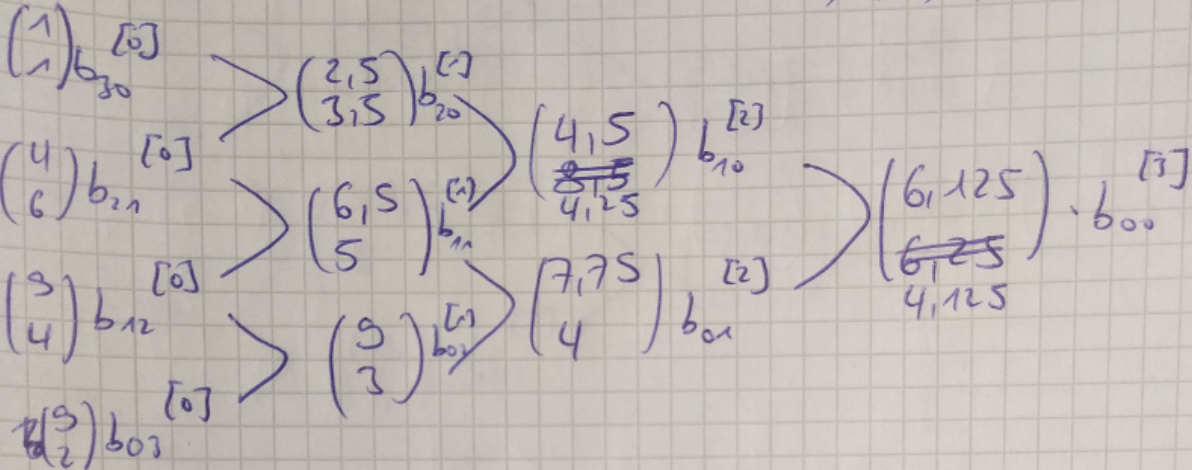 (1 1) b₃₀^[0]
(4 6) b₂₁^[0]
(9 4) b₁₂^[0]
(9 2) b₀₃^[0]
(2,5 3,5) b₂₀^[1]
(6,5 5) b₁₁^[1]
(9 3) b₀₂^[1]
(4,5 4,25) b₁₀^[2]
(7,75 4) b₀₁^[2]
(6,125 ~~6,25~~ 4,125) · b₀₀^[3]